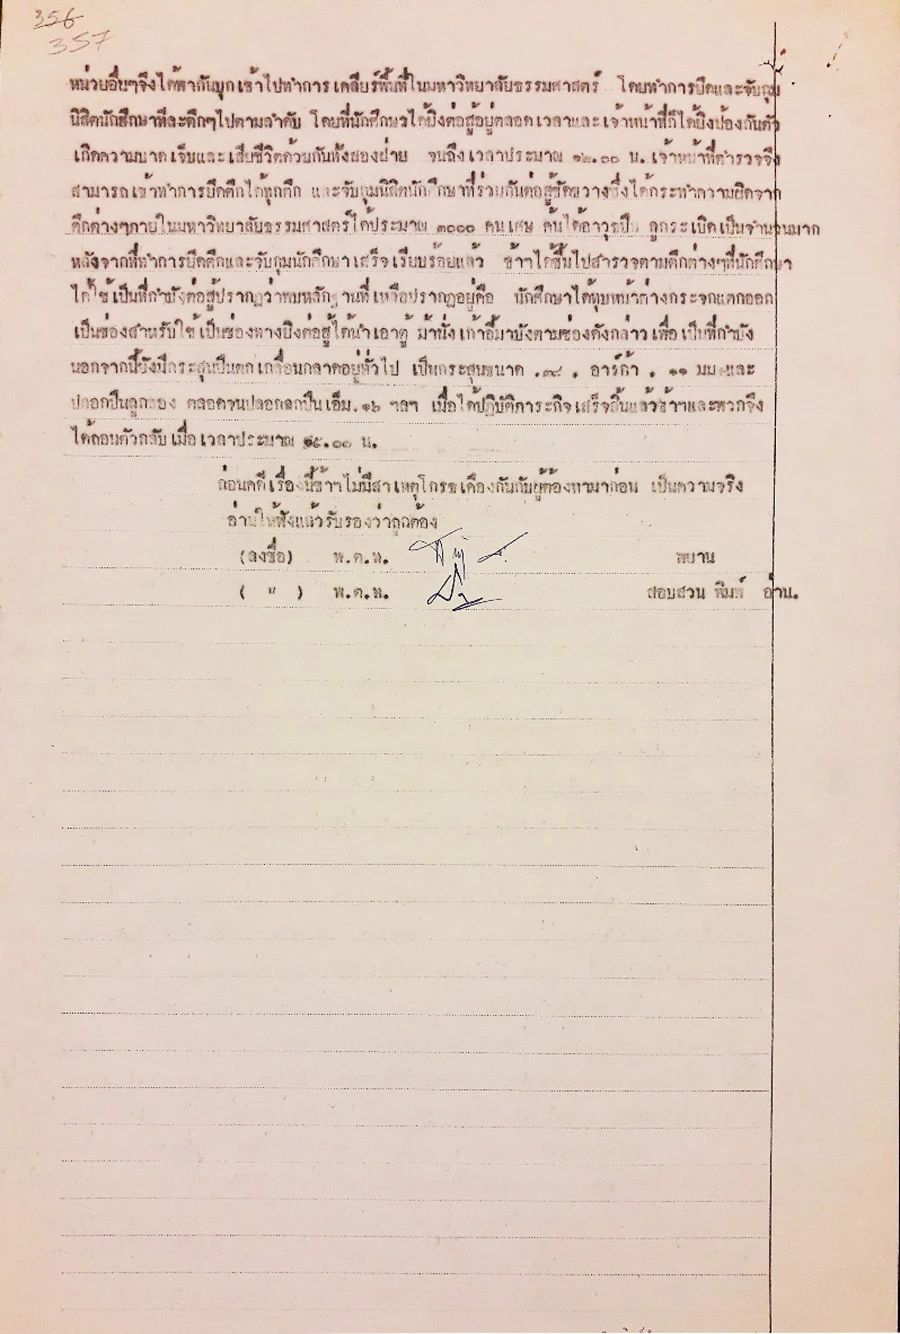 356
357
หน่วยอื่นๆจึงได้พากันบุกเข้าไปทำการเคลียร์พื้นที่ในมหาวิทยาลัยธรรมศาสตร์ โดยทำการยึดและจับกุม
นิสิตนักศึกษาทีละตึกๆไปตามลำดับ โดยที่นักศึกษาได้ยิงต่อสู้อยู่ตลอดเวลาและเจ้าหน้าที่ก็ได้ยิงป้องกันตัว
เกิดความบาดเจ็บและเสียชีวิตด้วยกันทั้งสองฝ่าย จนถึงเวลาประมาณ ๑๒.๐๐ น. เจ้าหน้าที่ตำรวจจึง
สามารถเข้าทำการยึดตึกได้ทุกตึก และจับกุมนิสิตนักศึกษาที่ร่วมกันต่อสู้ขัดขวางซึ่งได้กระทำความผิดจาก
ตึกต่างๆภายในมหาวิทยาลัยธรรมศาสตร์ได้ประมาณ ๓๐๐๐ คนเศษ ค้นได้อาวุธปืน ลูกระเบิดเป็นจำนวนมาก
หลังจากที่ทำการยึดตึกและจับกุมนักศึกษาเสร็จเรียบร้อยแล้ว ข้าฯได้ขึ้นไปสำรวจตามตึกต่างๆที่นักศึกษา
ได้ใช้เป็นที่กำบังต่อสู้ปรากฏว่าพบหลักฐานที่เหลือปรากฏอยู่คือ นักศึกษาได้ทุบหน้าต่างกระจกแตกออก
เป็นช่องสำหรับใช้เป็นช่องทางยิงต่อสู้ได้นำเอาตู้ ม้านั่งเก้าอี้มาบังตามช่องดังกล่าวเพื่อเป็นที่กำบัง
นอกจากนี้ยังมีกระสุนปืนตกเกลื่อนกลาดอยู่ทั่วไป เป็นกระสุนขนาด .๓๘ , อาร์ก้า , ๑๑ มม.และ
ปลอกปืนลูกซอง ตลอดจนปลอกลูกปืนเอ็ม.๑๖ ฯลฯ เมื่อได้ปฏิบัติภาระกิจเสร็จสิ้นแล้วข้าฯและพวกจึง
ได้ถอนตัวกลับเมื่อเวลาประมาณ ๑๕.๐๐ น.
ก่อนคดีเรื่องนี้ข้าฯไม่มีสาเหตุโกรธเคืองกันกับผู้ต้องหามาก่อน เป็นความจริง
อ่านให้ฟังแล้วรับรองว่าถูกต้อง
(ลงชื่อ) พ.ต.ท. พยาน
( " ) พ.ต.ท. สอบสวน พิมพ์ อ่าน.